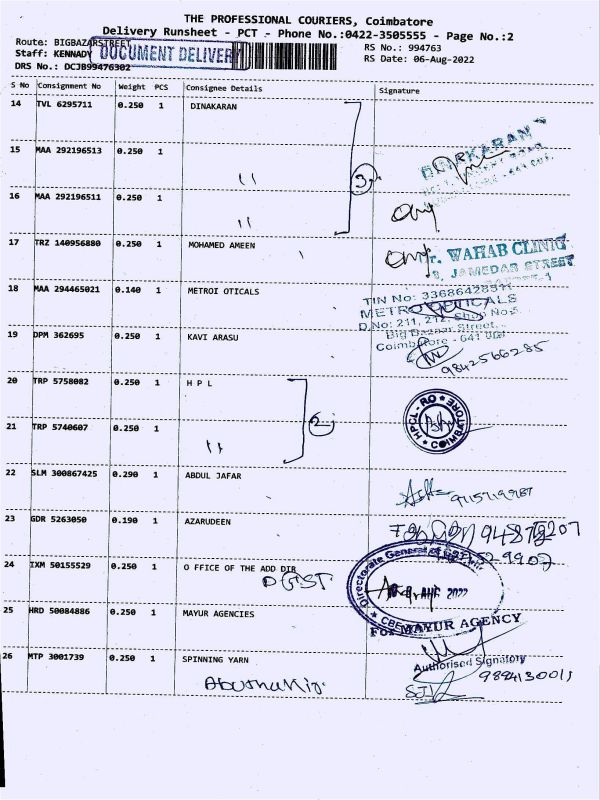 THE PROFESSIONAL COURIERS, Coimbatore
Delivery Runsheet - PCT - Phone No.:0422-3505555 - Page No.:2
Route: BIGBAZARSTREET
Staff: KENNADY
DRS No.: DCJB99476302
DOCUMENT DELIVERY
RS No.: 994763
RS Date: 06-Aug-2022
S No Consignment No Weight PCS Consignee Details Signature
14 TVL 6295711 0.250 1 DINAKARAN
15 MAA 292196513 0.250 1 "
16 MAA 292196511 0.250 1 "
3
17 TRZ 140956880 0.250 1 MOHAMED AMEEN
Dr. WAHAB CLINIC
JAMEDAR STREET
18 MAA 294465021 0.140 1 METROI OTICALS
TIN No: 33686428511
D.No: 211, 212, Shop No:5
Big Bazaar Street,
Coimbatore - 641 001
19 DPM 362695 0.250 1 KAVI ARASU
9842566285
20 TRP 5758082 0.250 1 H P L
21 TRP 5740607 0.250 1 "
2
HPCL-RO COIMBATORE
22 SLM 300867425 0.290 1 ABDUL JAFAR
23 GDR 5263050 0.190 1 AZARUDEEN
24 IXM 50155529 0.250 1 O FFICE OF THE ADD DIR
DGST
Directorate General of
2022
25 HRD 50084886 0.250 1 MAYUR AGENCIES
For MAYUR AGENCY
Authorised Signatory
26 MTP 3001739 0.250 1 SPINNING YARN
9894130011